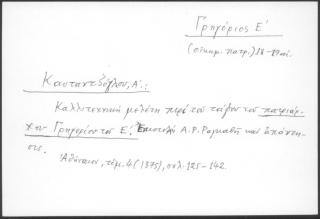 Γρηγόριος Ε'
(οἰκημ. πατρ.) 18-19 αἰ.
Καυταντζόγλου, Λ.:
Καλλιτεχνική μελέτη περί τοῦ τάφου τοῦ πατριάρ-
χου Γρηγορίου τοῦ Ε'. Ἐπιστολή Α.Ρ. Ραγκαβῆ καί ἀπάντη-
σις.
Ἀθήναιον, τόμ. 4 (1875), σελ. 125-142.